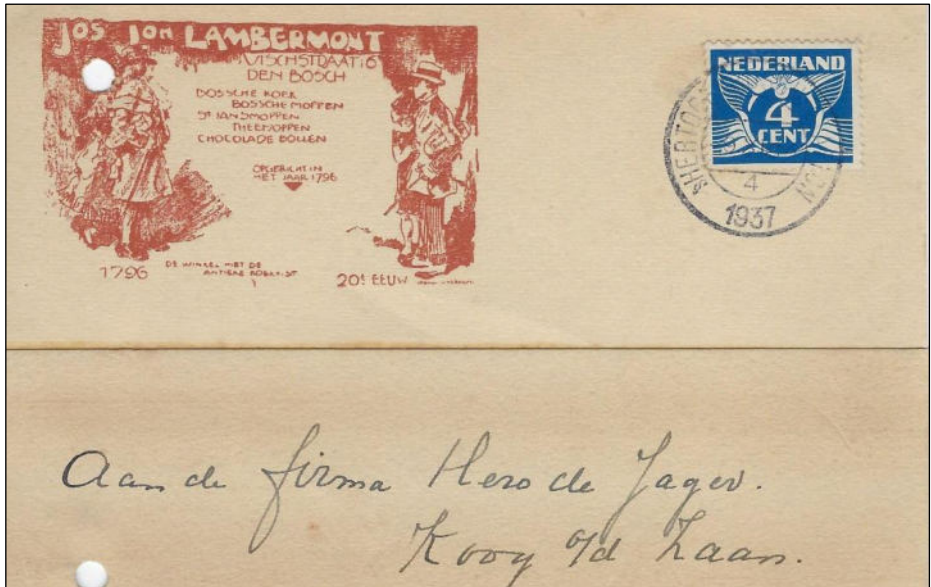 JOS JOH LAMBERMONT
VISCHSTRAAT 16
DEN BOSCH
BOSSCHE KOEK
BOSSCHE MOPPEN
ST JANSMOPPEN
THEEMOPPEN
CHOCOLADE BOLLEN
OPGERICHT IN
HET JAAR 1796
1796
DE WINKEL MET DE
ANTIEKE
20E EEUW
NEDERLAND
4
CENT
SHERTOG
4
1937
Aan de firma Hero de Jager.
Koog a/d Zaan.